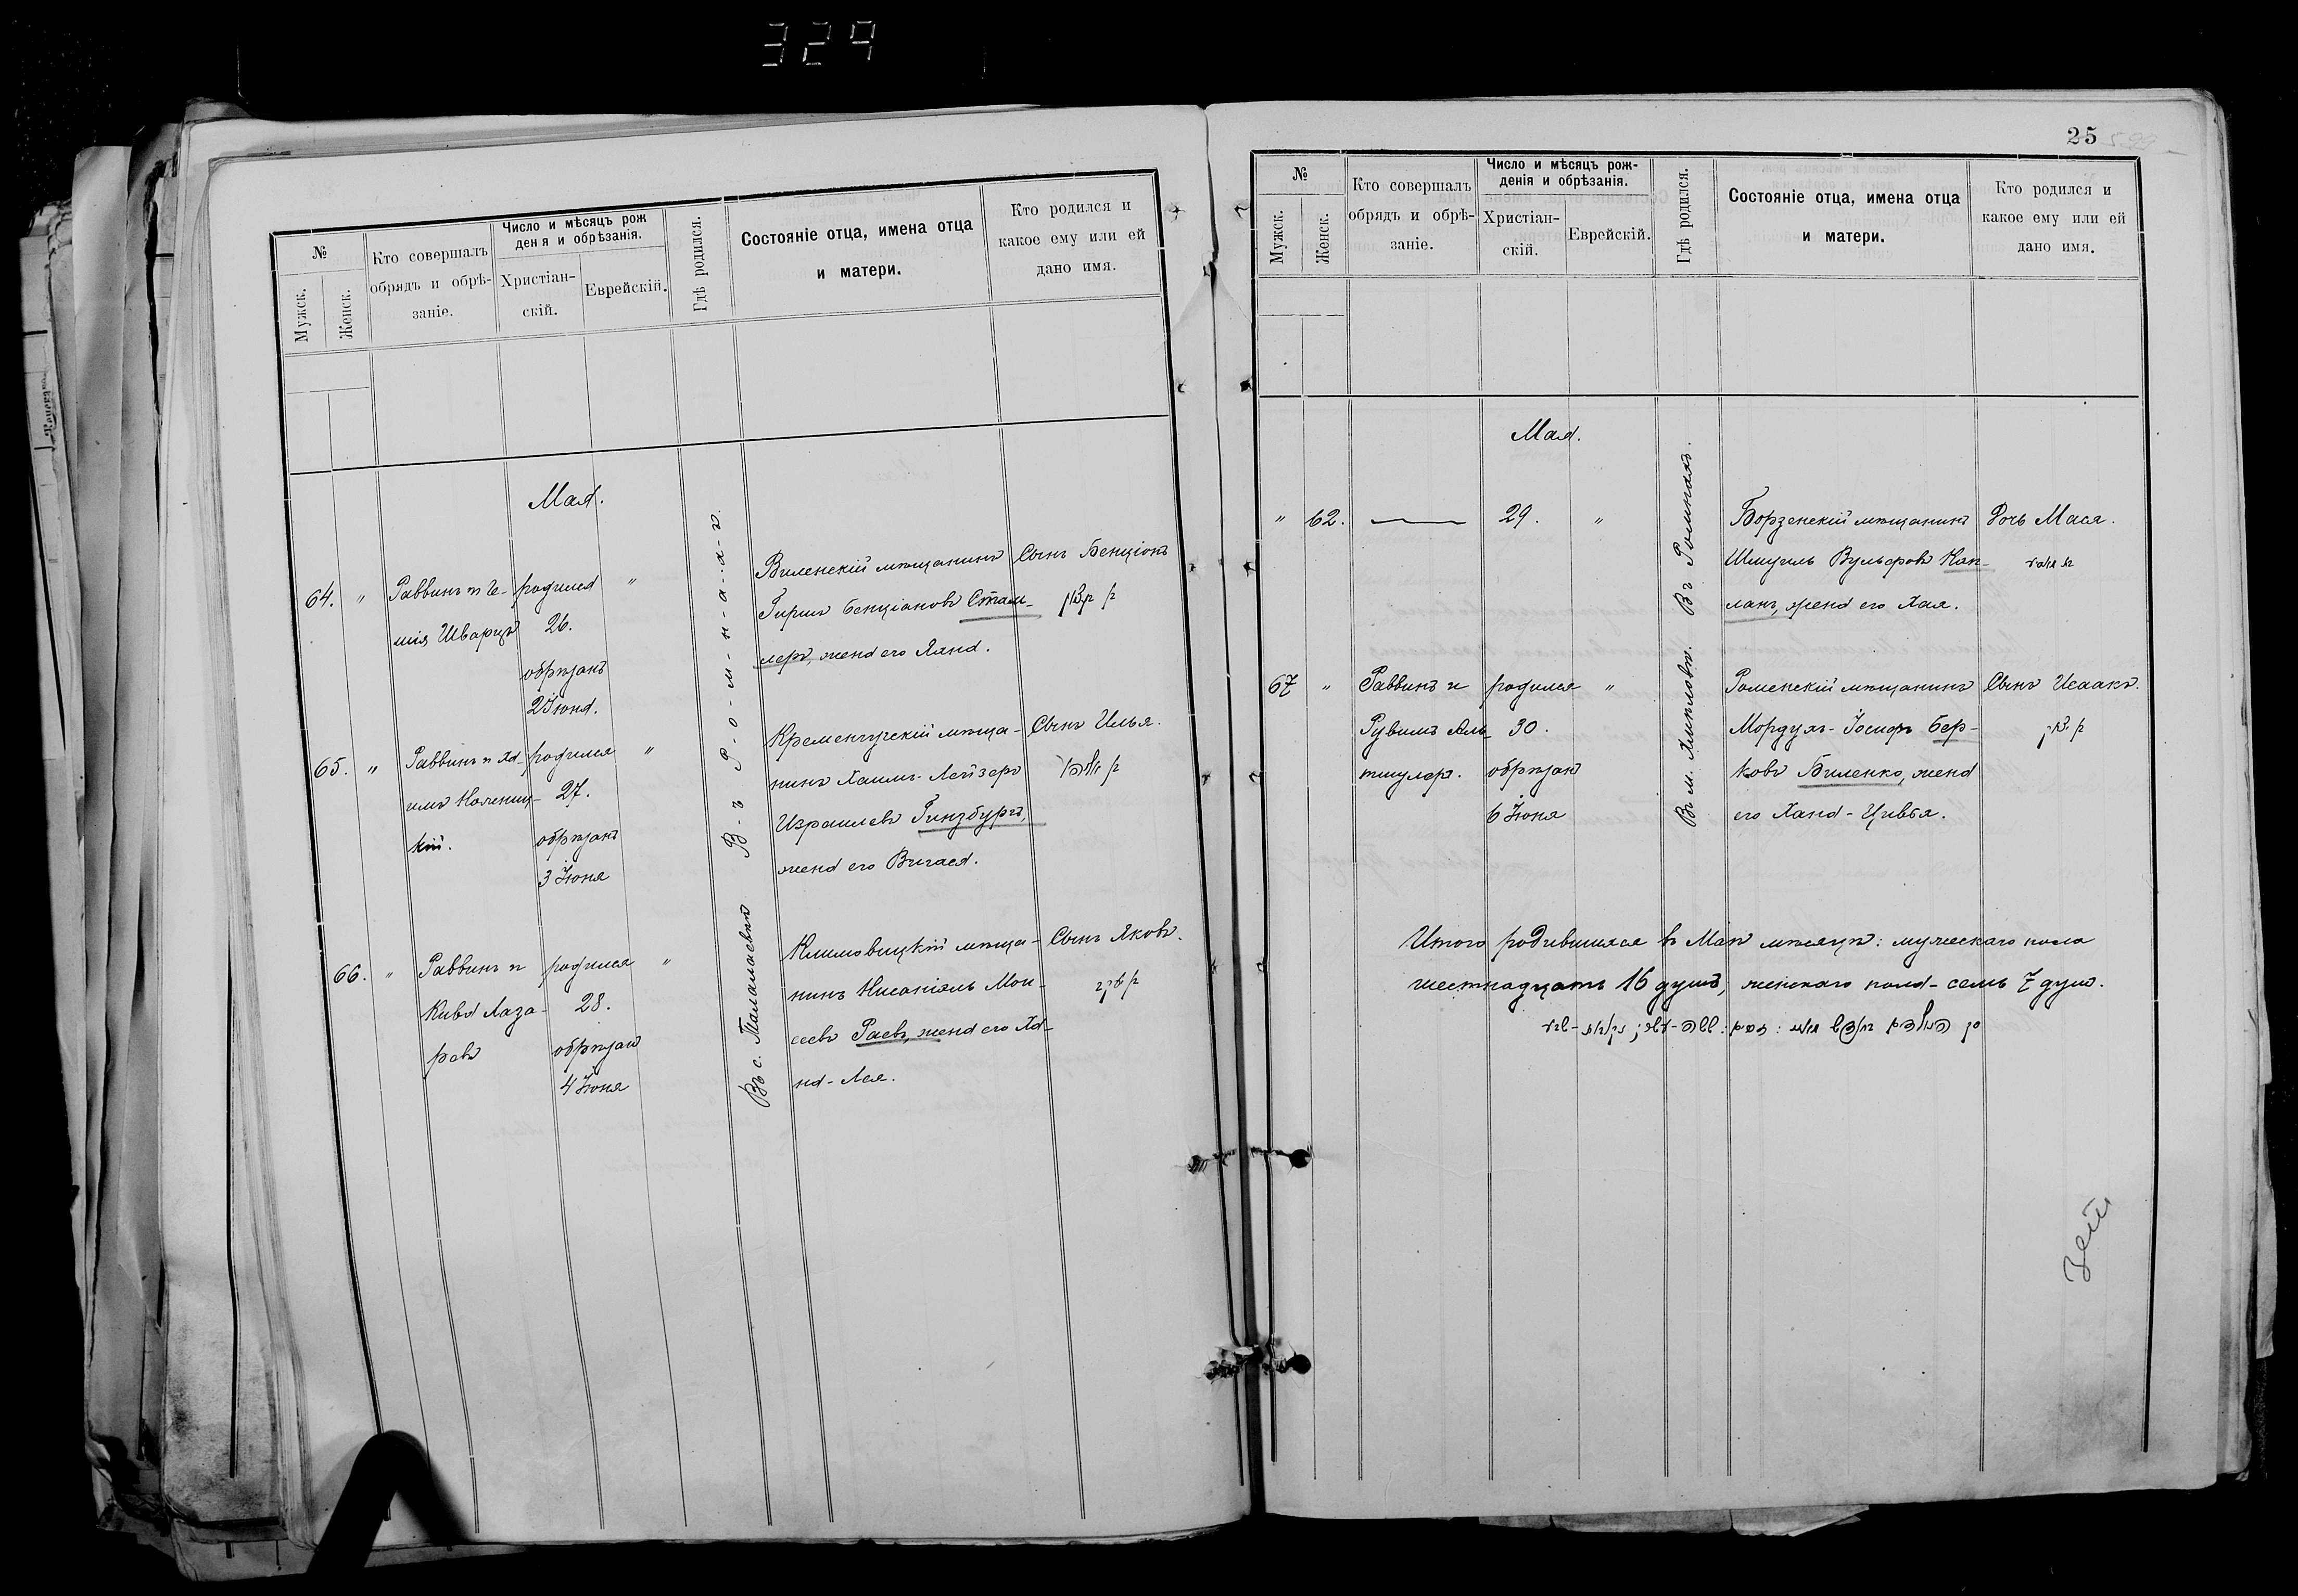 329
№
Мужск.
Женск.
Кто совершалъ
обрядъ и обрѣ-
заніе.
Число и мѣсяцъ рож
ден я и обрѣзанія.
Христіан-
скій.
Еврейскій.
Гдѣ родился.
Состояніе отца, имена отца
и матери.
Кто родился и
какое ему или ей
дано имя.
Мая.
64. "
Раввинъ и Іе-
шія Шварцъ
родился "
26.
обрѣзанъ
2 Іюня.
В-ъ Р-о-м-н-а-х-ъ.
Виленскій мѣщанинъ
Гиршъ Бенціановъ Стам-
леръ, жена его Хана.
Сынъ Бенціонъ
65. "
Раввинъ и Ха-
имъ
кій.
родился "
27.
обрѣзанъ
3 Іюня
Кременчугскій мѣща-
нинъ Хаимъ-Лейзеръ
Израилевъ Гинзбургъ,
жена его
Сынъ Илья.
66. "
Раввинъ и
Кива Лаза-
ровъ
родился "
28.
обрѣзан
4 Іюня
Въ с. Талалаевкѣ
Климовицкій мѣща-
нинъ Нисаніэль Мои-
сеевъ Раевъ, жена его Ха-
на-Лея.
Сынъ Яковъ.
25
№
Мужск.
Женск.
Кто совершалъ
обрядъ и обрѣ-
заніе.
Число и мѣсяцъ рож-
денія и обрѣзанія.
Христіан-
скій.
Еврейскій.
Гдѣ родился.
Состояніе отца, имена отца
и матери.
Кто родился и
какое ему или ей
дано имя.
Мая.
" 62.
29. "
Въ Ромнахъ.
Борзенскій мѣщанинъ
Шмуиль Вульфовъ Кап-
ланъ, жена его Хая.
Дочь Мася.
67 "
Раввинъ и
Рувимъ Аль-
тшулеръ.
родился "
30.
обрѣзанъ
6 Іюня
Въ м. Хмѣловѣ.
Роменскій мѣщанинъ
Мордухъ-Іосифъ Бер-
ковъ Биленко, жена
его Хана-Цивья.
Сынъ Исаакъ.
Итого родившихся въ Маѣ мѣсяцѣ: мужескаго пола
шестнадцать 16 душъ, женскаго пола - семь 7 душ.